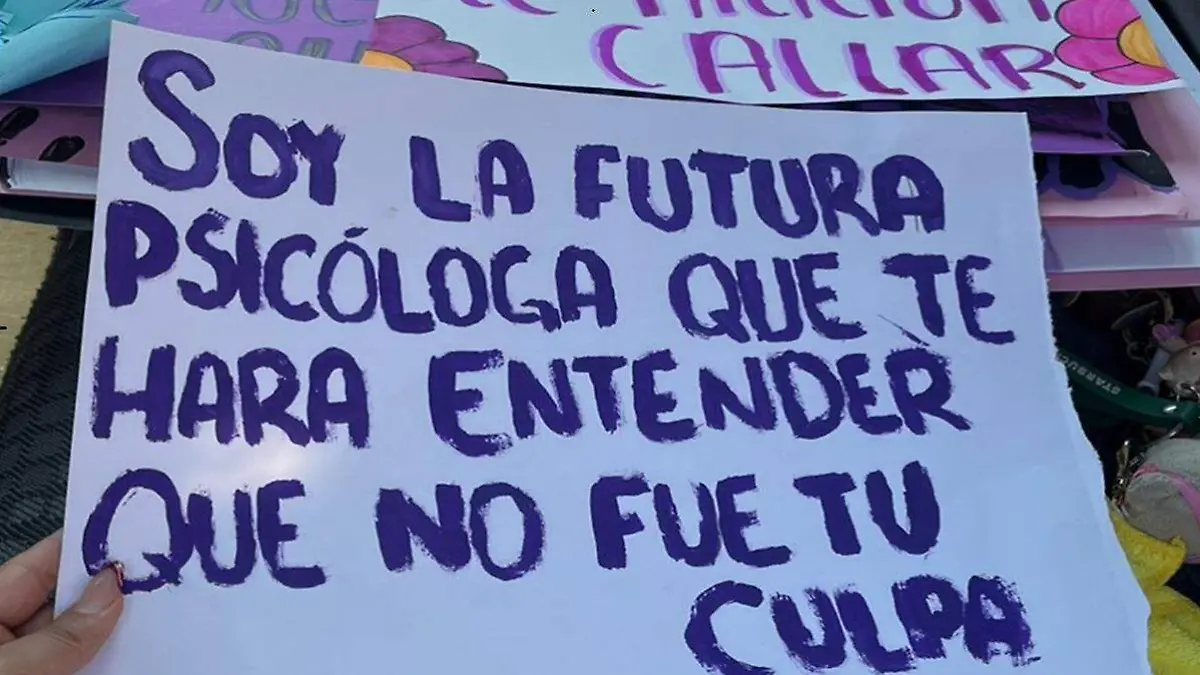 CALLAR
SOY LA FUTURA
PSICÓLOGA QUE TE
HARA ENTENDER
QUE NO FUE TU
CULPA
STARBUCKS